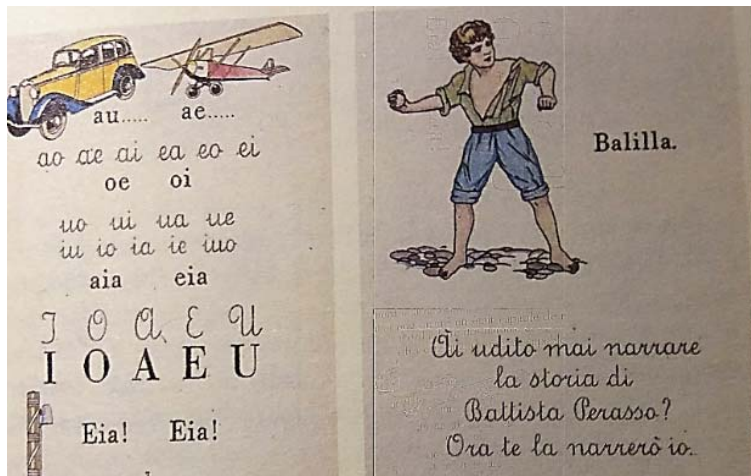 au..... ae.....
ao ae ai ea eo ei
oe oi
uo ui ua ue
iu io ia ie iuo
aia eia
I O A E U
I O A E U
Eia! Eia!
Balilla.
Ài udito mai narrare
la storia di
Battista Perasso?
Ora te la narrerò io.